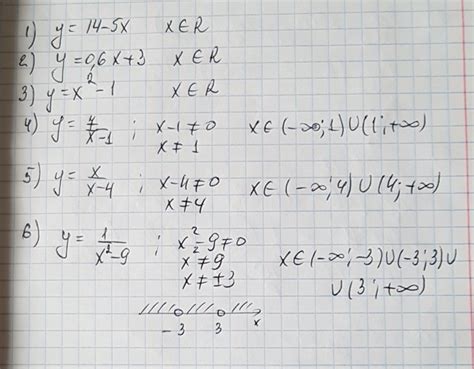 1) y = 14-5x x∈R
2) y = 0,6x+3 x∈R
3) y = x² - 1 x∈R
4) y = 4/(x-1) ; x-1≠0 x∈(-∞;1)∪(1;+∞)
x≠1
5) y = x/(x-4) ; x-4≠0 x∈(-∞;4)∪(4;+∞)
x≠4
6) y = 1/(x²-9) ; x²-9≠0
x²≠9 x∈(-∞;-3)∪(-3;3)∪
x≠±3 ∪(3;+∞)
-3 3 x